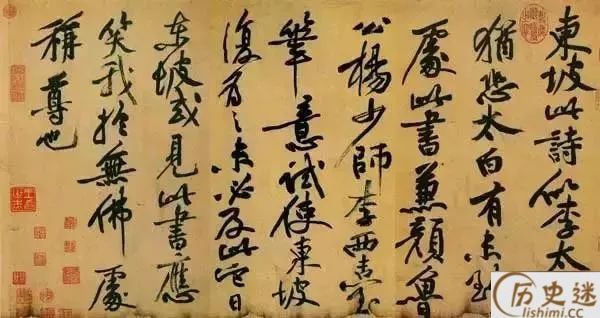 東坡此詩似李太
猶恐太白有未到
處此書兼顏魯
公楊少師李西臺
筆意試使東坡
復為之未必及此它日
東坡或見此書應
笑我於無佛處
稱尊也
历史迷
lishimi.cc